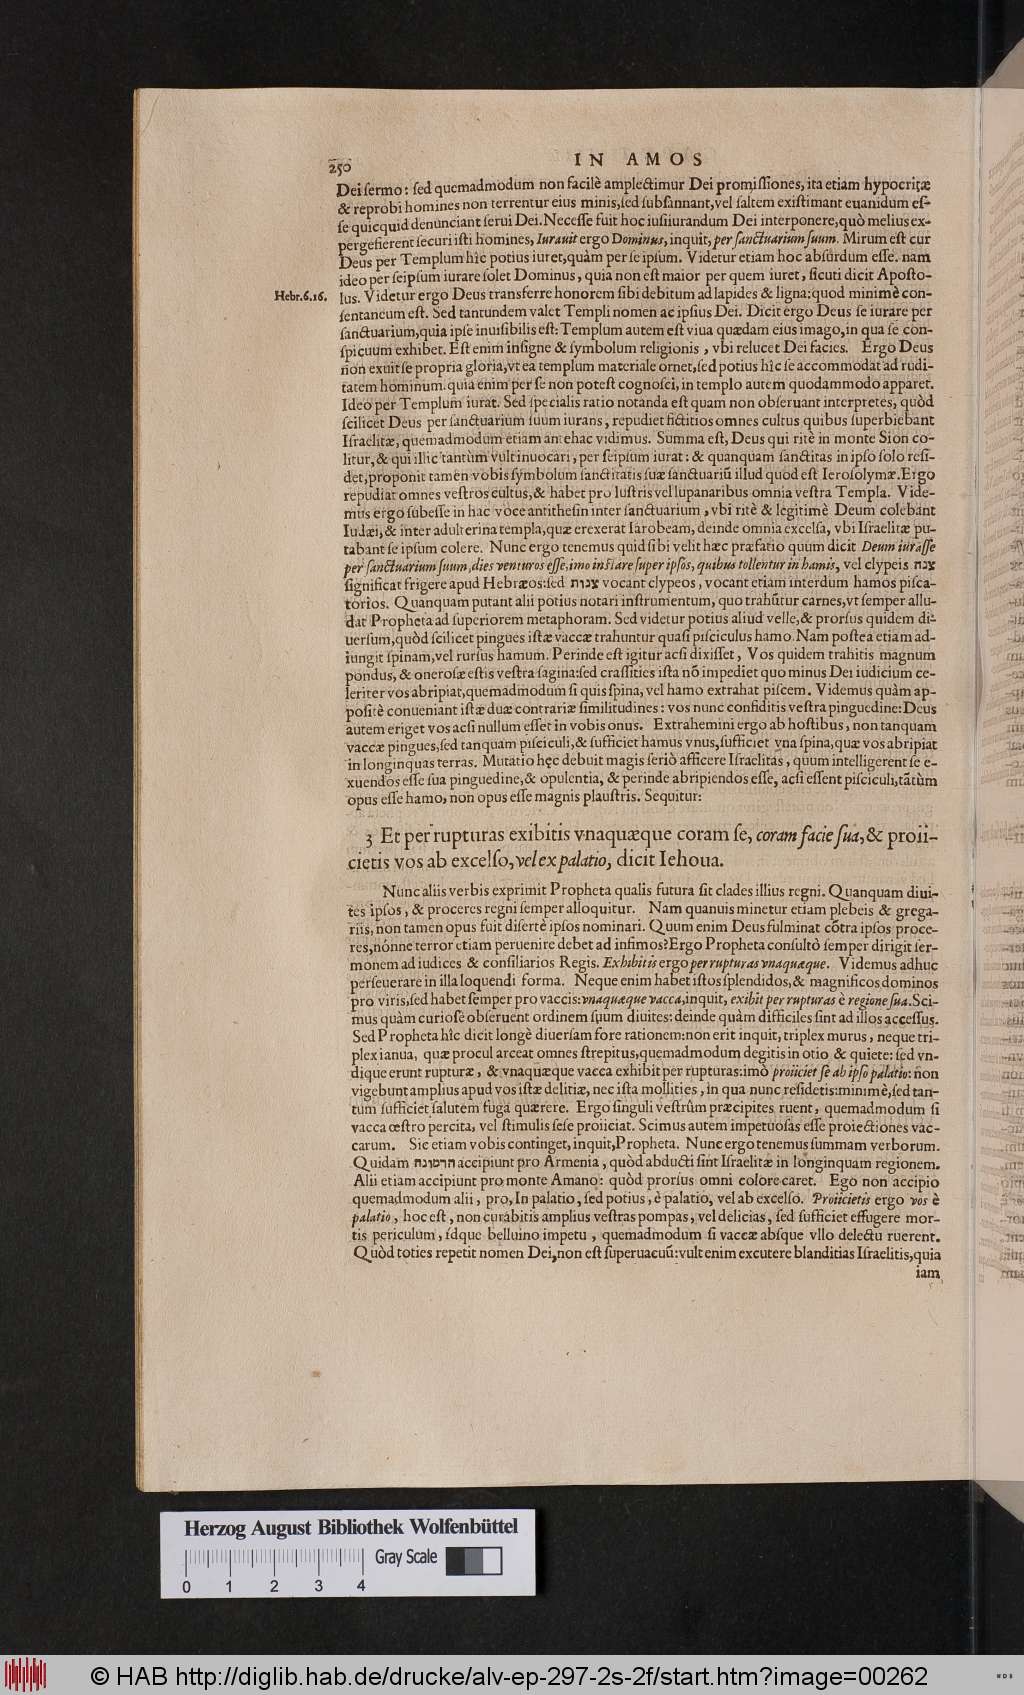 250
IN AMOS
Dei ſermo: ſed quemadmodum non facilè amplectimur Dei promiſſiones, ita etiam hypocritæ
& reprobi homines non terrentur eius minis, ſed ſubſannant, vel ſaltem exiſtimant euanidum eſ-
ſe quicquid denunciant ſerui Dei. Neceſſe fuit hoc iuſiiurandum Dei interponere, quò melius ex-
pergefierent ſecuri iſti homines, Iurauit ergo Dominus, inquit, per ſanctuarium ſuum. Mirum eſt cur
Deus per Templum hîc potius iuret, quàm per ſe ipſum. Videtur etiam hoc abſurdum eſſe. nam
ideo per ſeipſum iurare ſolet Dominus, quia non eſt maior per quem iuret, ſicuti dicit Apoſto-
Hebr. 6. 16.
lus. Videtur ergo Deus transferre honorem ſibi debitum ad lapides & ligna: quod minimè con-
ſentaneum eſt. Sed tantundem valet Templi nomen ac ipſius Dei. Dicit ergo Deus ſe iurare per
ſanctuarium, quia ipſe inuiſibilis eſt: Templum autem eſt viua quædam eius imago, in qua ſe con-
ſpicuum exhibet. Eſt enim inſigne & ſymbolum religionis, vbi relucet Dei facies. Ergo Deus
non exuit ſe propria gloria, vt ea templum materiale ornet, ſed potius hîc ſe accommodat ad rudi-
tatem hominum. quia enim per ſe non poteſt cognoſci, in templo autem quodammodo apparet.
Ideo per Templum iurat. Sed ſpecialis ratio notanda eſt quam non obſeruant interpretes, quòd
ſcilicet Deus per ſanctuarium ſuum iurans, repudiet fictitios omnes cultus quibus ſuperbiebant
Iſraelitæ, quemadmodum etiam antehac vidimus. Summa eſt, Deus qui ritè in monte Sion co-
litur, & qui illîc tantùm vult inuocari, per ſeipſum iurat: & quanquam ſanctitas in ipſo ſolo reſi-
det, proponit tamen vobis ſymbolum ſanctitatis ſuæ ſanctuariũ illud quod eſt Ieroſolymæ. Ergo
repudiat omnes veſtros cultus, & habet pro luſtris vel lupanaribus omnia veſtra Templa. Vide-
mus ergo ſubeſſe in hac voce antitheſin inter ſanctuarium, vbi ritè & legitimè Deum colebant
Iudæi, & inter adulterina templa, quæ erexerat Iarobeam, deinde omnia excelſa, vbi Iſraelitæ pu-
tabant ſe ipſum colere. Nunc ergo tenemus quid ſibi velit hæc præfatio quum dicit Deum iuraſſe
per ſanctuarium ſuum, dies venturos eſſe, imo inſtare ſuper ipſos, quibus tollentur in hamis, vel clypeis צנה
ſignificat frigere apud Hebræos: ſed צנות vocant clypeos, vocant etiam interdum hamos piſca-
torios. Quanquam putant alii potius notari inſtrumentum, quo trahũtur carnes, vt ſemper allu-
dat Propheta ad ſuperiorem metaphoram. Sed videtur potius aliud velle, & prorſus quidem di-
uerſum, quòd ſcilicet pingues iſtæ vaccæ trahuntur quaſi piſciculus hamo. Nam poſtea etiam ad-
iungit ſpinam, vel rurſus hamum. Perinde eſt igitur acſi dixiſſet, Vos quidem trahitis magnum
pondus, & oneroſæ eſtis veſtra ſagina: ſed craſſities iſta nõ impediet quo minus Dei iudicium ce-
leriter vos abripiat, quemadmodum ſi quis ſpina, vel hamo extrahat piſcem. Videmus quàm ap-
poſitè conueniant iſtæ duæ contrariæ ſimilitudines: vos nunc confiditis veſtra pinguedine: Deus
autem eriget vos acſi nullum eſſet in vobis onus. Extrahemini ergo ab hoſtibus, non tanquam
vaccæ pingues, ſed tanquam piſciculi, & ſufficiet hamus vnus, ſufficiet vna ſpina, quæ vos abripiat
in longinquas terras. Mutatio hęc debuit magis ſeriò afficere Iſraelitas, quum intelligerent ſe e-
xuendos eſſe ſua pinguedine, & opulentia, & perinde abripiendos eſſe, acſi eſſent piſciculi, tãtùm
opus eſſe hamo, non opus eſſe magnis plauſtris. Sequitur:
3 Et per rupturas exibitis vnaquæque coram ſe, coram facie ſua, & proii-
cietis vos ab excelſo, vel ex palatio, dicit Iehoua.
Nunc aliis verbis exprimit Propheta qualis futura ſit clades illius regni. Quanquam diui-
tes ipſos, & proceres regni ſemper alloquitur. Nam quanuis minetur etiam plebeis & grega-
riis, non tamen opus fuit diſertè ipſos nominari. Quum enim Deus fulminat cõtra ipſos proce-
res, nónne terror etiam peruenire debet ad infimos? Ergo Propheta conſultò ſemper dirigit ſer-
monem ad iudices & conſiliarios Regis. Exhibitis ergo per rupturas vnaquæque. Videmus adhuc
perſeuerare in illa loquendi forma. Neque enim habet iſtos ſplendidos, & magnificos dominos
pro viris, ſed habet ſemper pro vaccis: vnaquæque vacca, inquit, exibit per rupturas è regione ſua. Sci-
mus quàm curioſè obſeruent ordinem ſuum diuites: deinde quàm difficiles ſint ad illos acceſſus.
Sed Propheta hîc dicit longè diuerſam fore rationem: non erit inquit, triplex murus, neque tri-
plex ianua, quæ procul arceat omnes ſtrepitus, quemadmodum degitis in otio & quiete: ſed vn-
dique erunt rupturæ, & vnaquæque vacca exhibit per rupturas: imò proiiciet ſe ab ipſo palatio: non
vigebunt amplius apud vos iſtæ delitiæ, nec iſta mollities, in qua nunc reſidetis: minimè, ſed tan-
tum ſufficiet ſalutem fuga quærere. Ergo ſinguli veſtrûm præcipites ruent, quemadmodum ſi
vacca œſtro percita, vel ſtimulis ſeſe proiiciat. Scimus autem impetuoſas eſſe proiectiones vac-
carum. Sic etiam vobis continget, inquit, Propheta. Nunc ergo tenemus ſummam verborum.
Quidam הרמונה accipiunt pro Armenia, quòd abducti ſint Iſraelitæ in longinquam regionem.
Alii etiam accipiunt pro monte Amano: quòd prorſus omni colore caret. Ego non accipio
quemadmodum alii, pro, In palatio, ſed potius, è palatio, vel ab excelſo. Proiicietis ergo vos è
palatio, hoc eſt, non curabitis amplius veſtras pompas, vel delicias, ſed ſufficiet effugere mor-
tis periculum, idque belluino impetu, quemadmodum ſi vaccæ abſque vllo delectu ruerent.
Quòd toties repetit nomen Dei, non eſt ſuperuacuũ: vult enim excutere blanditias Iſraelitis, quia
iam
Herzog August Bibliothek Wolfenbüttel
Gray Scale
0 1 2 3 4
© HAB http://diglib.hab.de/drucke/alv-ep-297-2s-2f/start.htm?image=00262